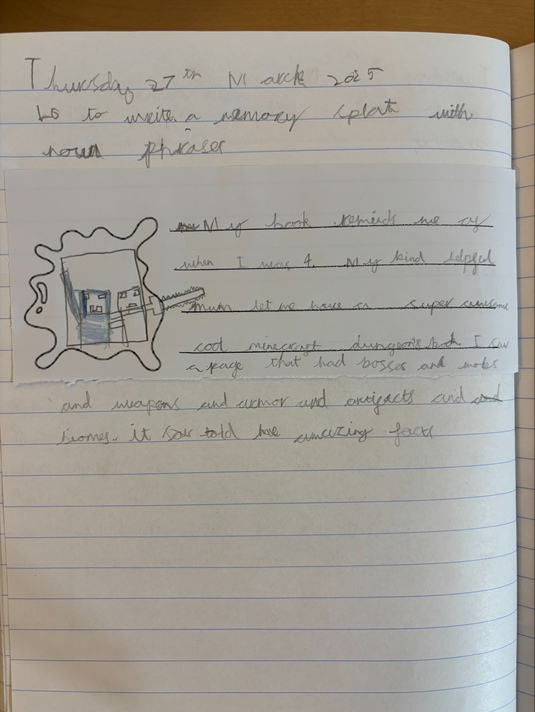 Thursday 27th March 2025
LO to write a memory splat with
noun phrases
My book reminds me of
when I was 4. My kind helpful
mum let me have a super awsome
cool minecraft dungeons book I saw
a page that had bosses and mobs
and weapons and armor and artifacts and
biomes. it told me amazing facts